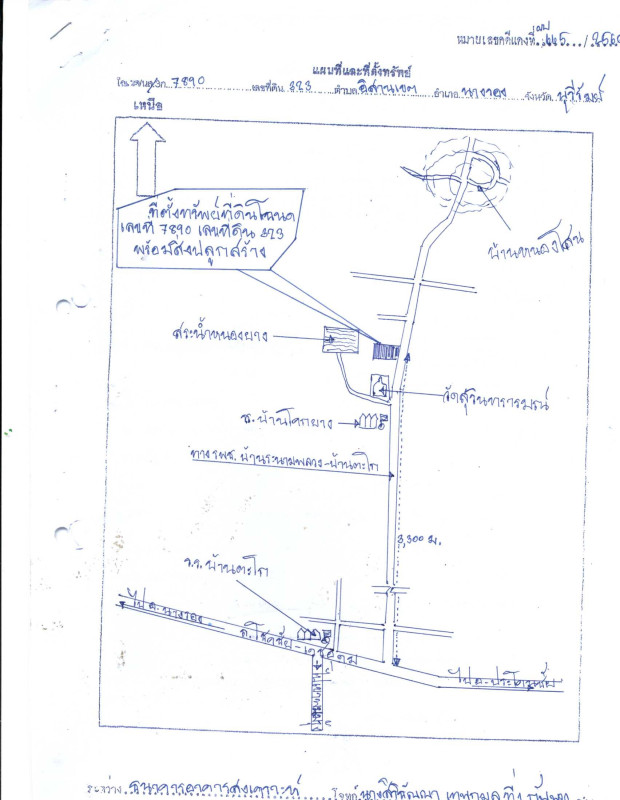 หมายเลขคดีแดงที่
แผนที่และที่ตั้งทรัพย์
โฉนดเลขที่ 7890 เลขที่ดิน 323 ตำบล อิสานเขต อำเภอ นางรอง จังหวัด บุรีรัมย์
เหนือ
ที่ตั้งทรัพย์ที่ดินโฉนด
เลขที่ 7890 เลขที่ดิน 323
พร้อมสิ่งปลูกสร้าง
บ้านหนองโสน
สระน้ำหนองยาง
วัดสุวินทรารมณ์
ร.ร.บ้านโคกยาง
ทาง รพช. บ้านระนามพลวง-บ้านตะโก
3,300 ม.
ร.ร. บ้านตะโก
ไป อ. นางรอง
ถ. โชคชัย - เดชอุดม
ไป อ. ประโคนชัย
ระหว่าง ธนาคารอาคารสงเคราะห์ โจทก์